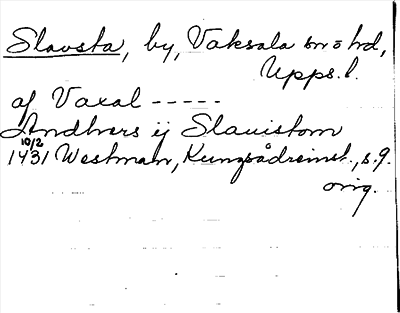 Slavsta, by, Vaksala sn o hd,
Upps. l.
af Vaxal -----
Andhors ij Slauistom
10/2
1431 Westman, Kungsådreinst., s. 9.
orig.